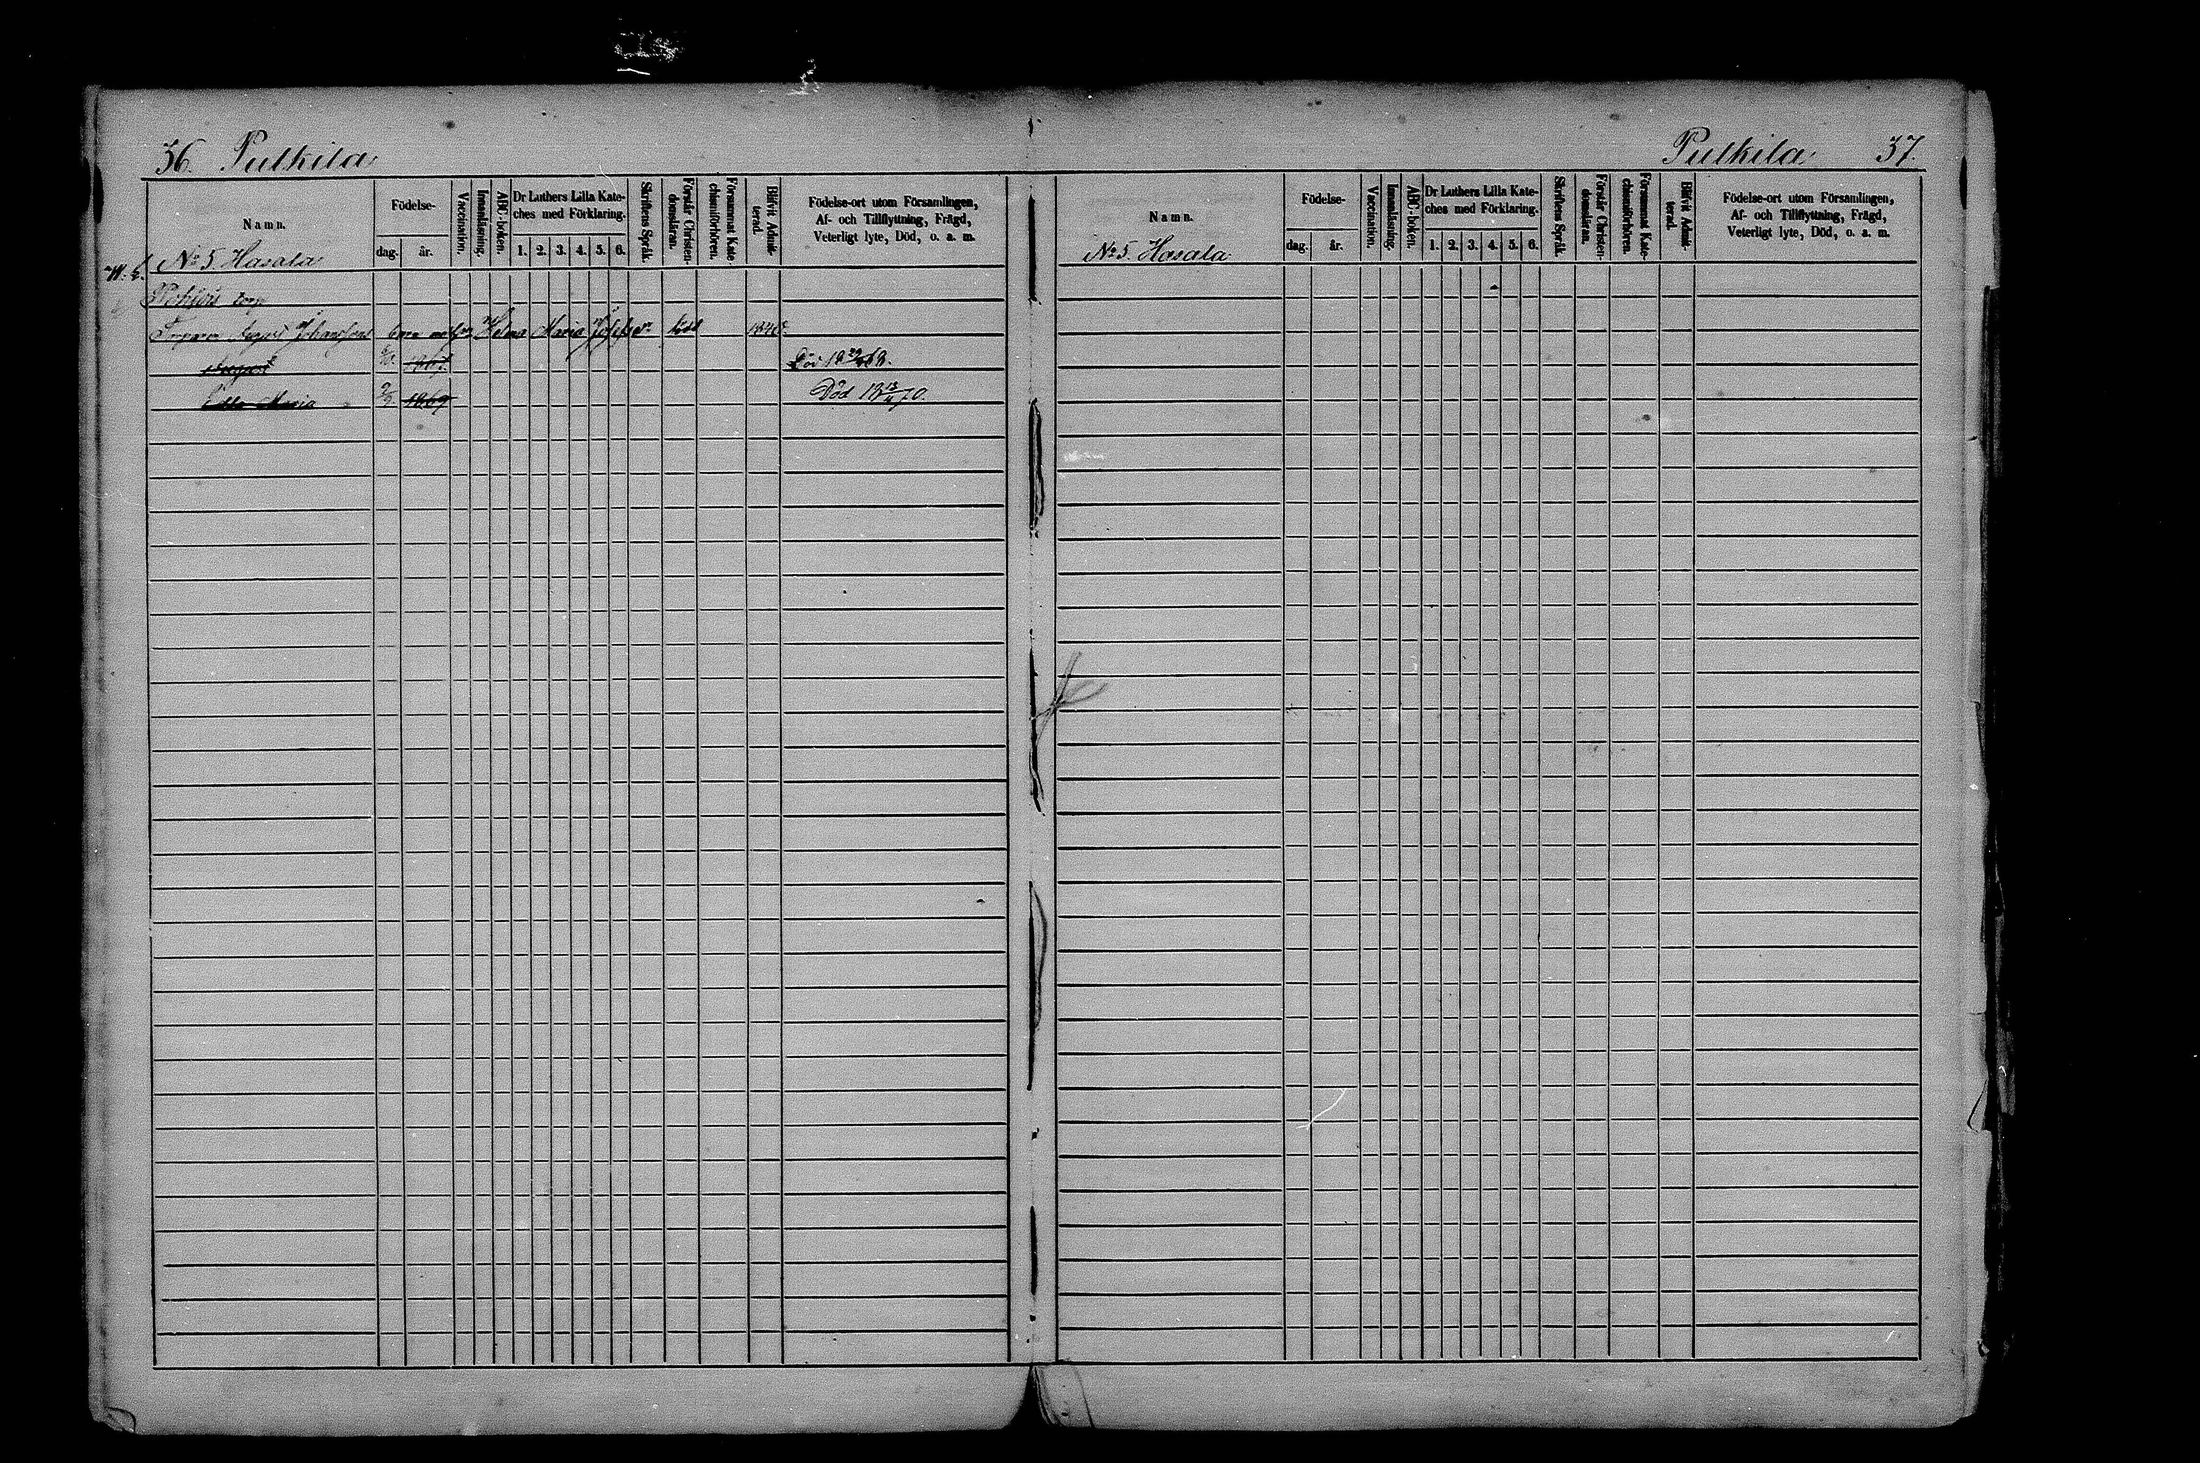 36. Pulkila
Namn.
Födelse-
dag.
år.
Vaccination.
Innanläsning.
ABC-boken.
Dr Luthers Lilla Kate-
ches med Förklaring.
1. 2. 3. 4. 5. 6.
Skriftens Språk.
Förstår Christen-
domsläran.
Försummat Kate-
chismiförhören.
Blifvit Admit-
terad.
Födelse-ort utom Församlingen,
Af- och Tillflyttning, Frägd,
Veterligt lyte, Död, o. a. m.
No 5. Hasala
torp
Johansson Maria 1840.
August 1867. Död 18 68.
Maria 1869 Död 18 13/11 70.
Pulkila 37.
Namn.
No 5. Hasala
Födelse-
dag.
år.
Vaccination.
Innanläsning.
ABC-boken.
Dr Luthers Lilla Kate-
ches med Förklaring.
1. 2. 3. 4. 5. 6.
Skriftens Språk.
Förstår Christen-
domsläran.
Försummat Kate-
chismiförhören.
Blifvit Admit-
terad.
Födelse-ort utom Församlingen,
Af- och Tillflyttning, Frägd,
Veterligt lyte, Död, o. a. m.